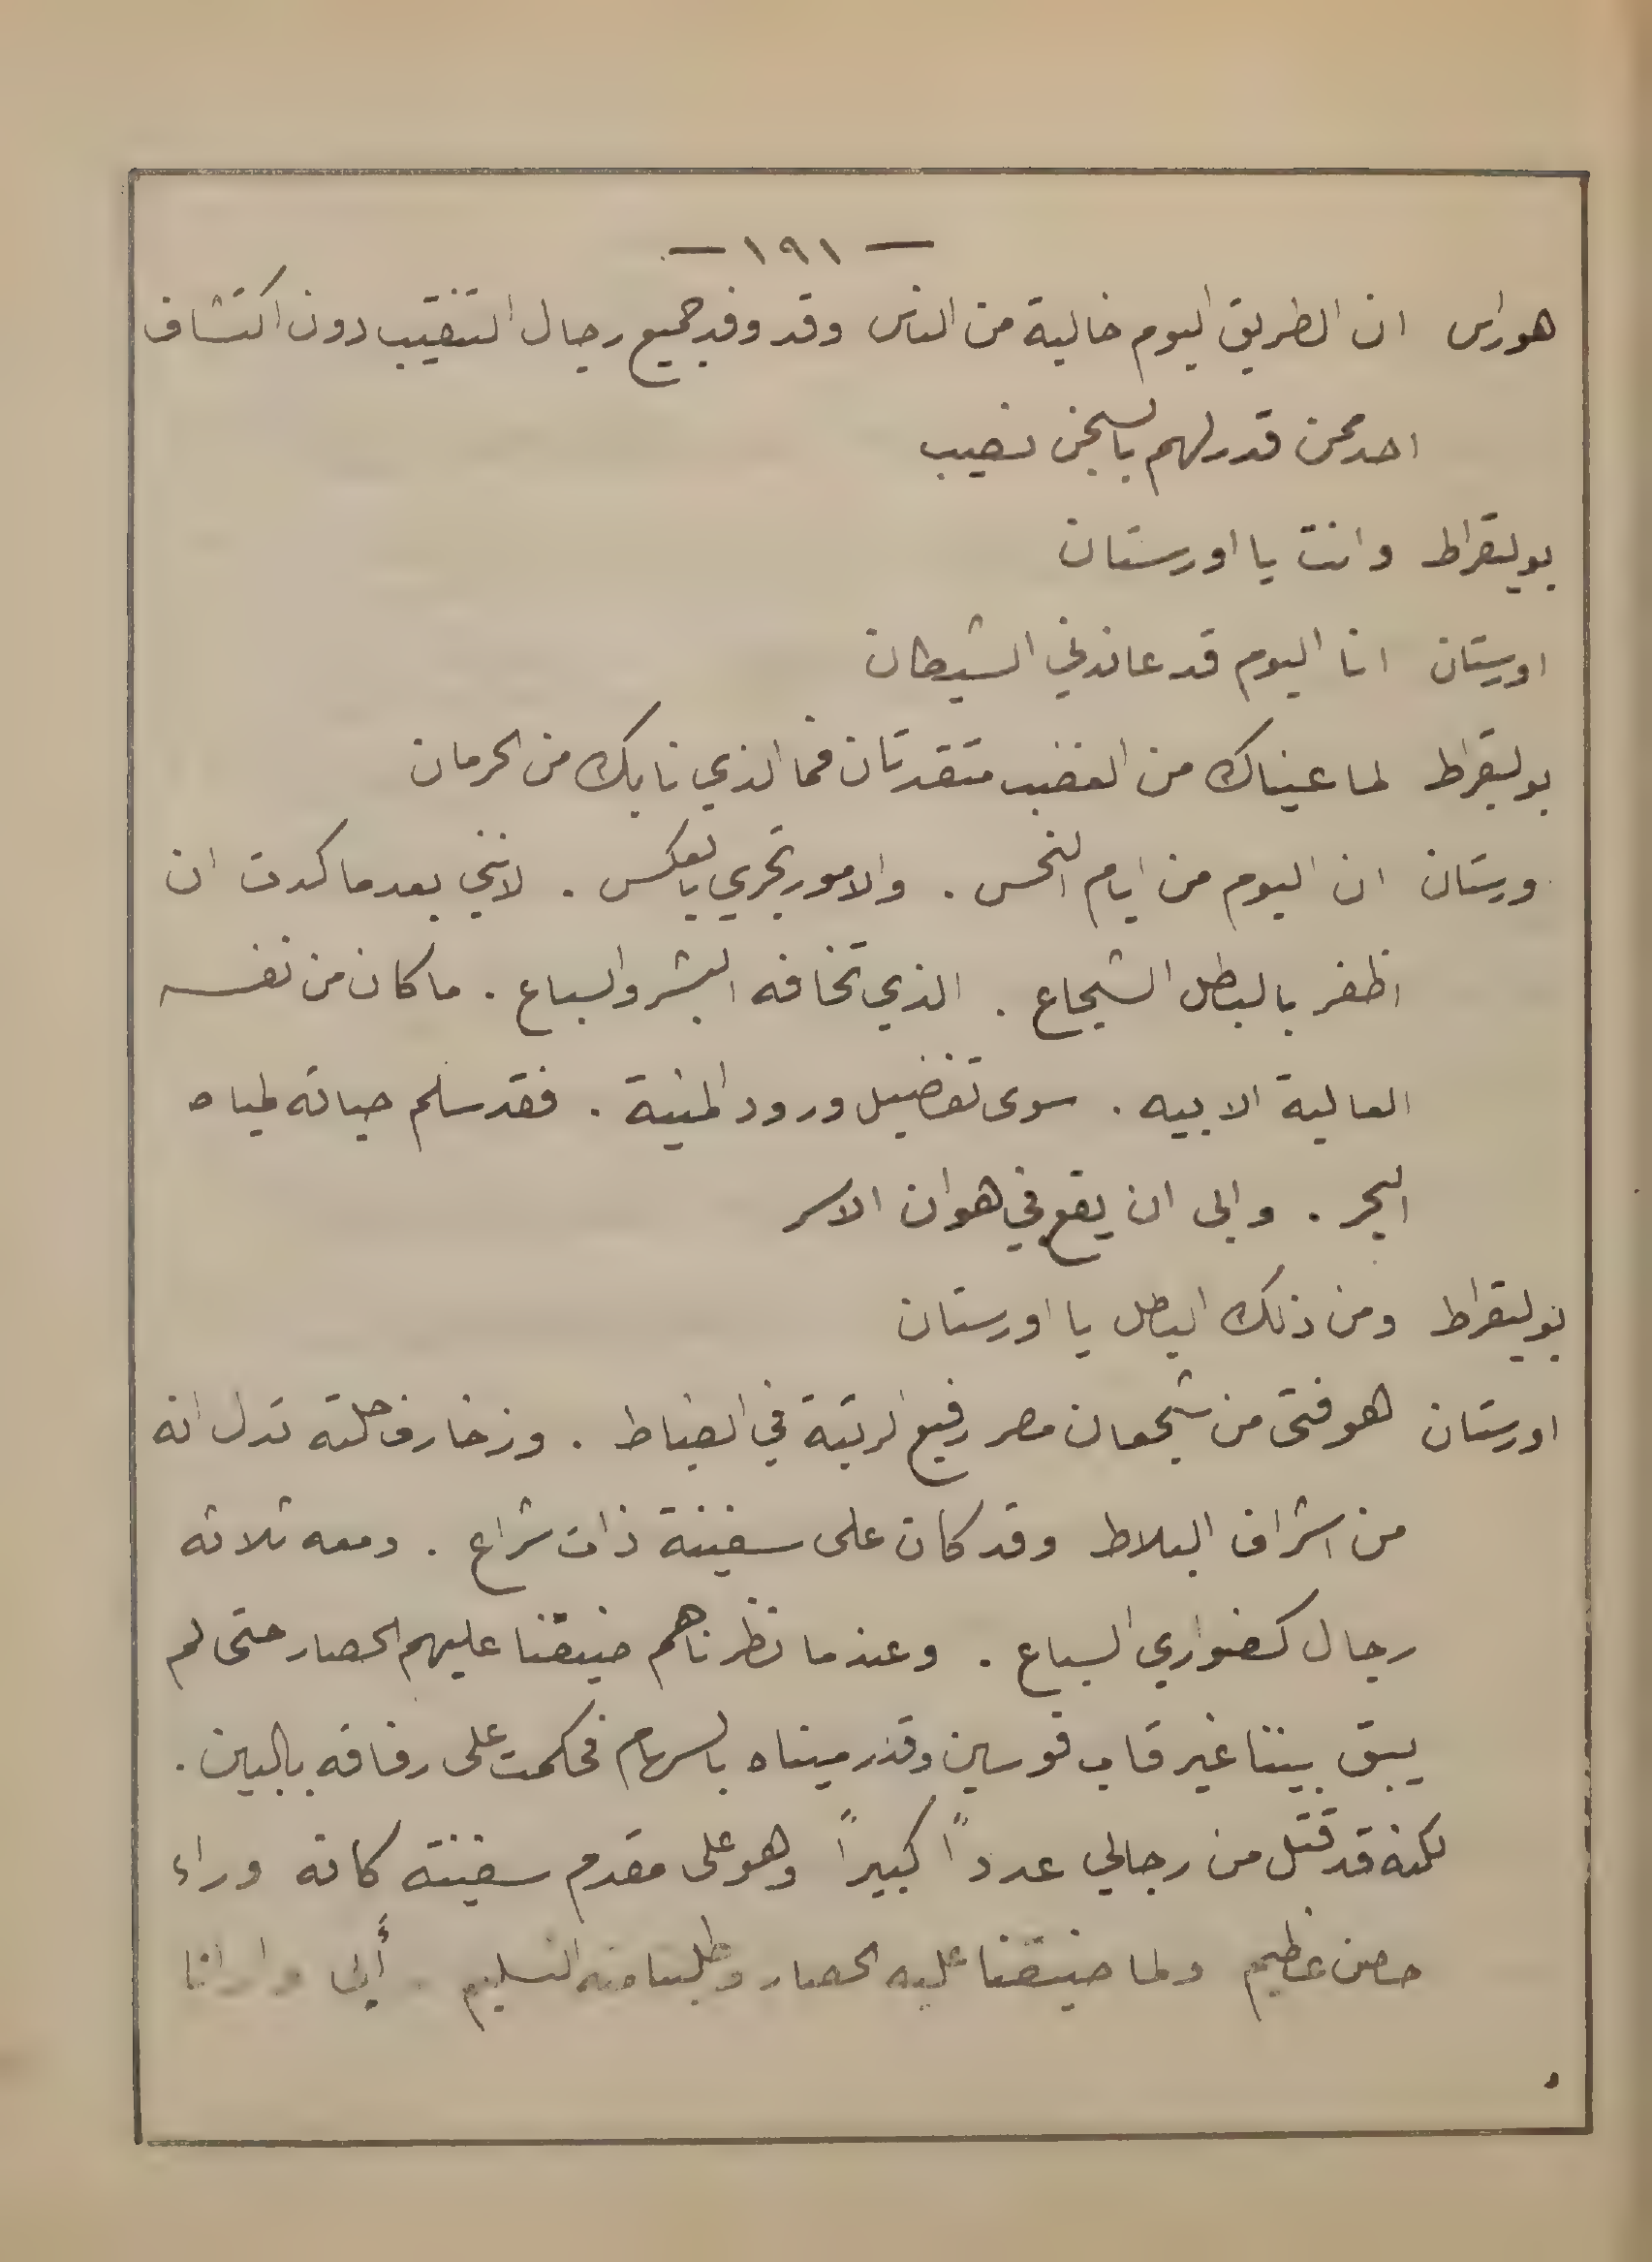 — ١٩١ —
هوراس ان الطريق اليوم خالية من الناس وقد وفد جميع رجال التنقيب دون اكتشاف
احد ممن قدر لهم بالسجن نصيب
بوليقراط وانت يا اورستان
اورستان انا اليوم قد عاندني الشيطان
بوليقراط لما عيناك من الغضب متقدتان فما الذي نابك من الحرمان
ورستان ان اليوم من ايام النحس . والامور تجري بالعكس . لانني بعد ما كدت ان
اظفر بالبطل الشجاع . الذي تخافه البشر والسباع . ما كان من نفسه
العالية الابيه . سوى تفضيل ورود المنية . فقد سلم حياته لمياه
البحر . وابى ان يقع في هوان الاسر
بوليقراط ومن ذلك البطل يا اورستان
اورستان هو فتى من شجعان مصر رفيع الرتبة في الضباط . وزخارف حلته تدل انه
من اشراف البلاط وقد كان على سفينة ذات شراع . ومعه ثلاثه
رجال كضواري السباع . وعندما نظرناهم ضيقنا عليهم الحصار حتى لم
يبق بيننا غير قاب قوسين وقد رميناه بالسهام فحكمت على رفاقه بالبين .
لكنه قد قتل من رجالي عدداً كبيراً وهو على مقدم سفينته كانه وراء
حصن عظيم ولما ضيقنا عليه الحصار وطلبنا منه التسليم . أبى